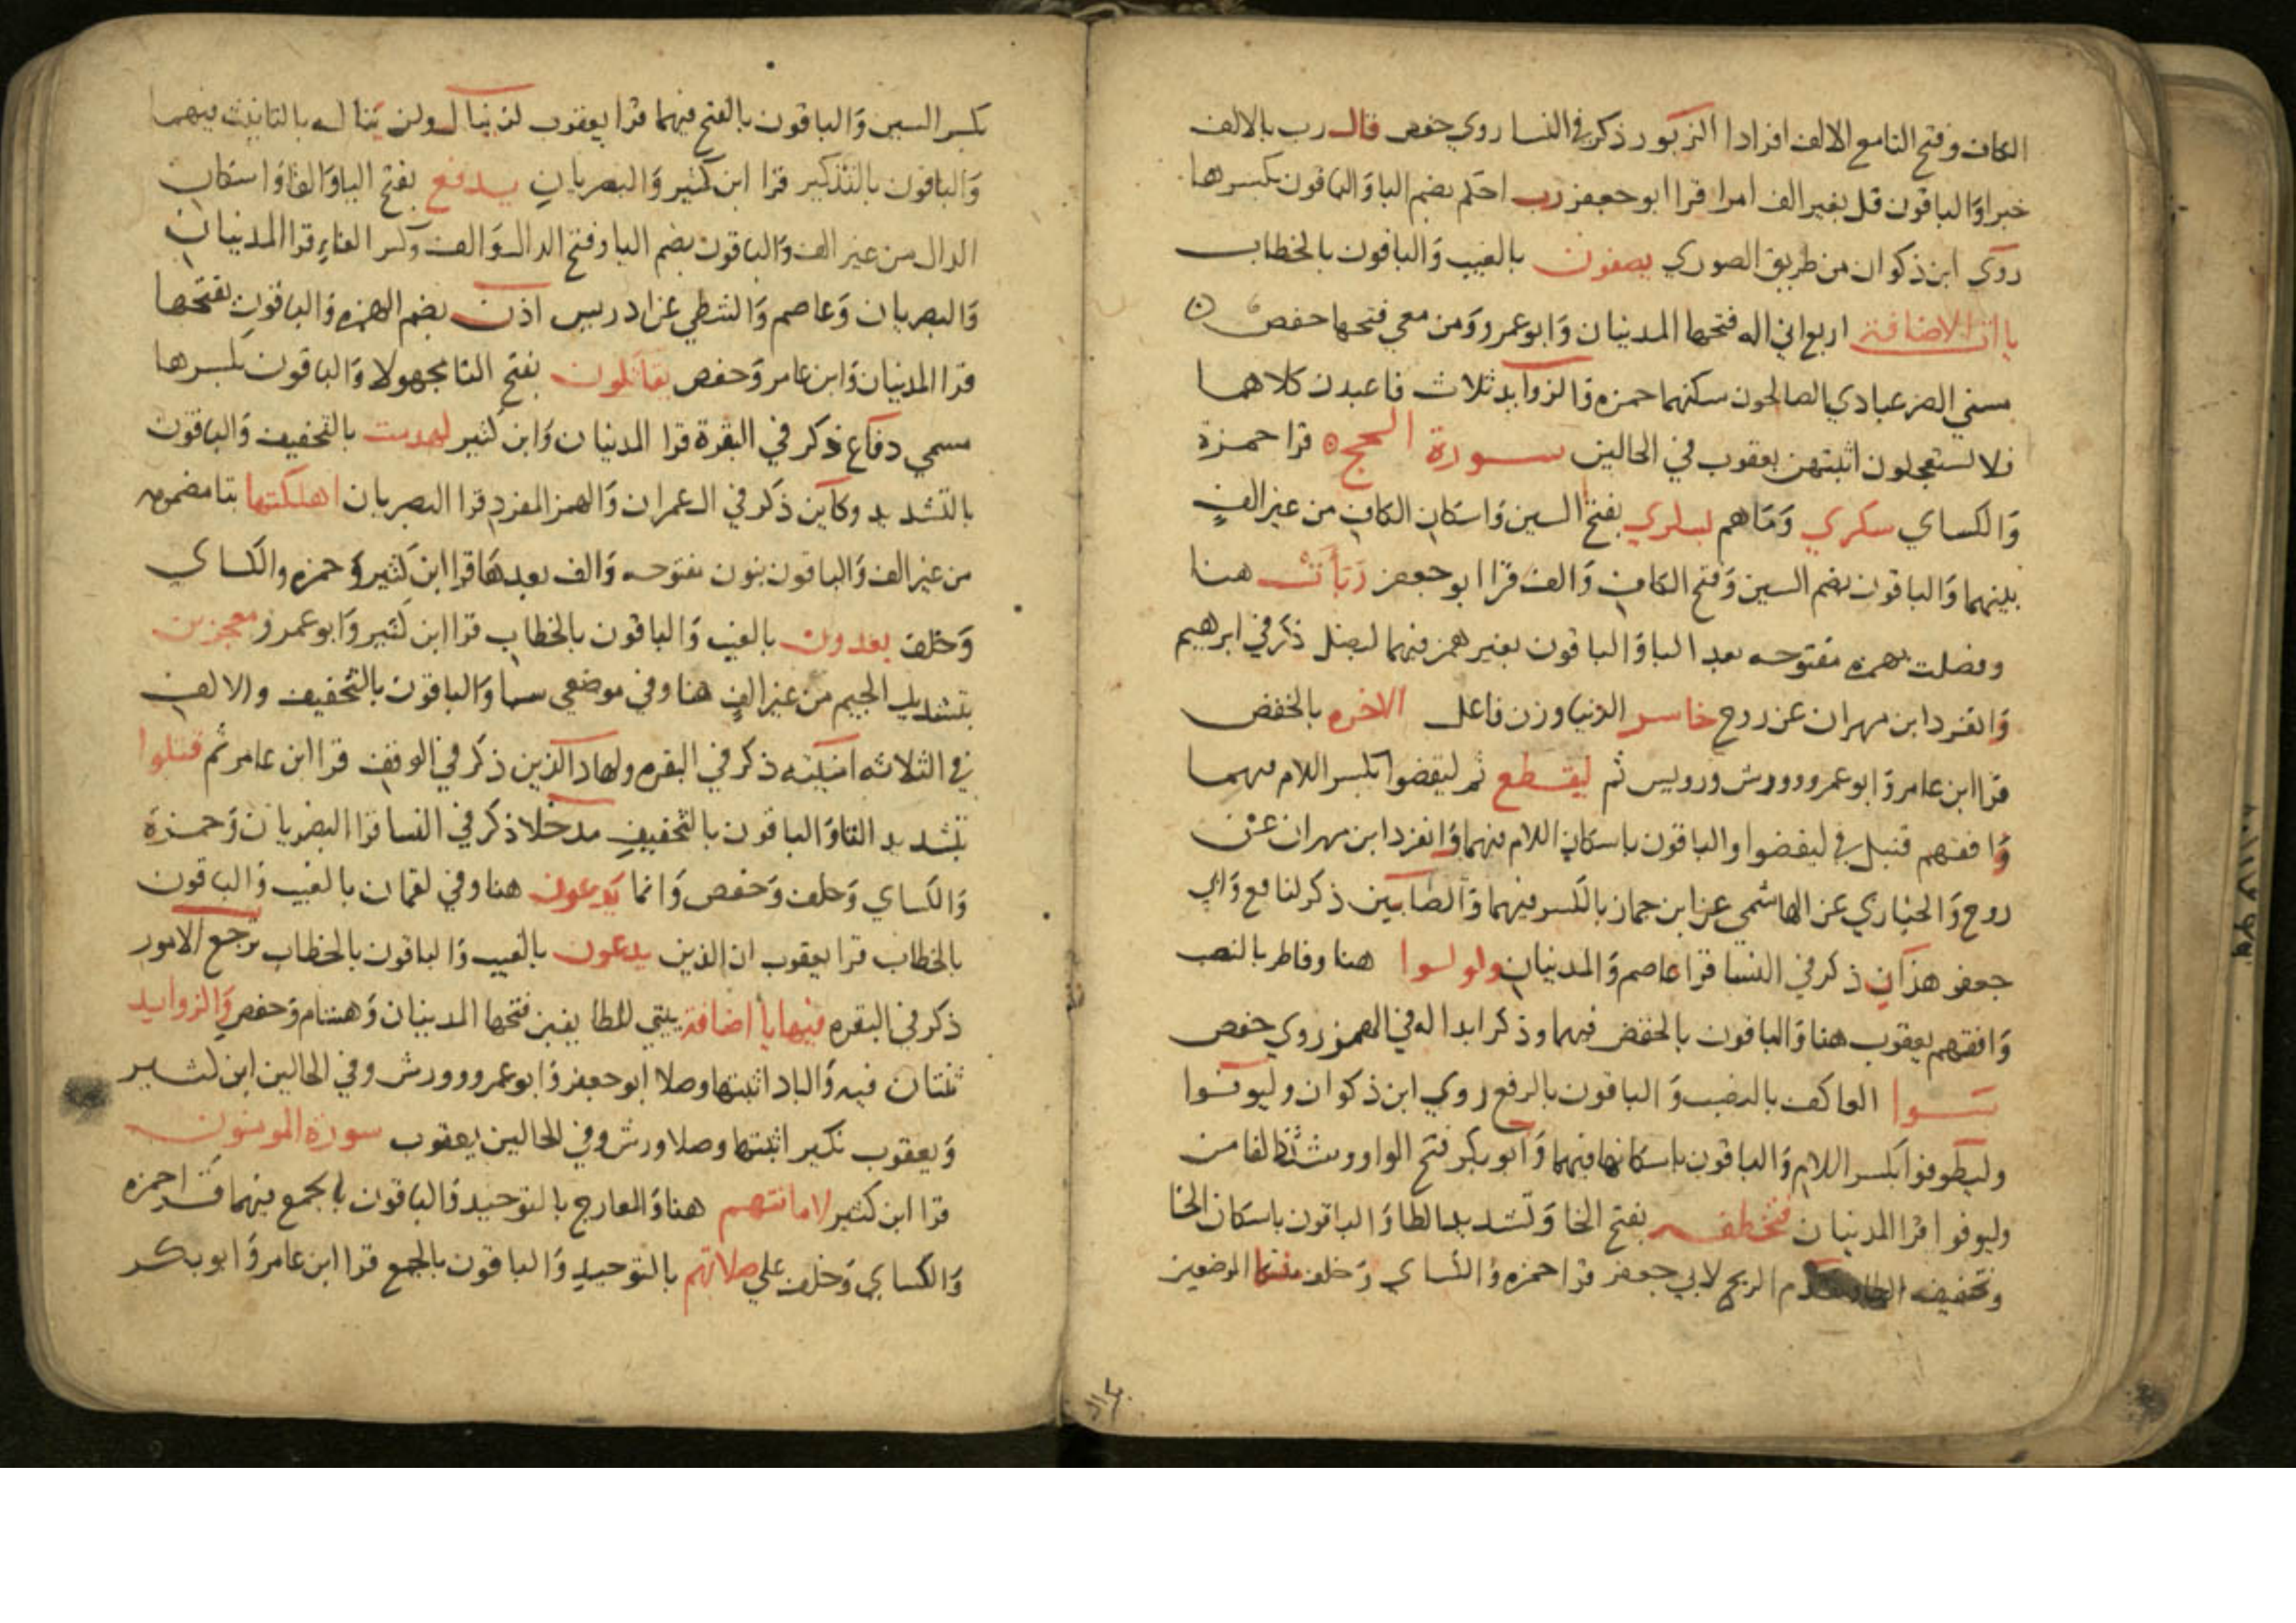 الكاف وفتح التا مع الالف افرادا الزبور ذكر في النسا روي حفص قال رب بالالف
خبرا والباقون قل بغير الف امرا قرا ابو جعفر رب احكم بضم البا والباقون بكسرها
روي ابن ذكوان من طريق الصوري يصفون بالغيب والباقون بالخطاب
ياات الاضافة اربع اني اله فتحها المدنيان وابو عمرو ومن معي فتحها حفص
مسني الضر عبادي الصالحون سكنهما حمزه والزوايد ثلاث فاعبدون كلاهما
فلا تستعجلون اثبتهن يعقوب في الحالين سورة الحج قرا حمزة
والكساي سكري وما هم بسكري بفتح السين واسكان الكاف من غير الف
بينهما والباقون بضم السين وفتح الكاف والف قرا ابو جعفر ربأت هنا
وفصلت بهمزه مفتوحه بعد البا والباقون بغير همز فيهما ليضل ذكر في ابرهيم
وانفرد ابن مهران عن روح خاسر الدنيا وزن فاعل الاخره بالخفض
قرا ابن عامر وابو عمرو وورش ورويس ثم ليقطع ثم ليقضوا بكسر اللام فيهما
وافقهم قنبل في ليقضوا والباقون باسكان اللام فيهما وانفرد ابن مهران عن
روح والخبازي عن الهاشمي عن ابن جماز بالكسر فيهما والصابين ذكر لنافع وابي
جعفر هذان ذكر في النسا قرا عاصم والمدنيان ولولوا هنا وفاطر بالنصب
وافقهم يعقوب هنا والباقون بالخفض فيهما وذكر ابداله في الهمز روي حفص
سوا العاكف بالنصب والباقون بالرفع روي ابن ذكوان وليوفوا
وليطوفوا بكسر اللام والباقون باسكانها فيهما وابو بكر فتح الواو وشدد الفا من
وليوفوا قرا المدنيان فتخطفه بفتح الخا وتشديد الطا والباقون باسكان الخا
وتخفيف الطا وتقدم الريح لابي جعفر قرا حمزه والكساي وخلف منسكا الموضعين
بكسر السين والباقون بالفتح فيهما قرا يعقوب لن ينال ولن يناله بالتانيث فيهما
والباقون بالتذكير قرا ابن كثير والبصريان يدفع بفتح اليا والفا واسكان
الدال من غير الف والباقون بضم اليا وفتح الدال والف وكسر الفا قرا المدنيان
والبصريان وعاصم والشطي عن ادريس اذن بضم الهمزه والباقون بفتحها
قرا المدنيان وابن عامر وحفص يقاتلون بفتح التا مجهولا والباقون بكسرها
مسمي دفاع ذكر في البقرة قرا المدنيان وابن كثير لهدمت بالتخفيف والباقون
بالتشديد وكاين ذكر في ال عمران والهمز المفرد قرا البصريان اهلكتها بتا مضمومه
من غير الف والباقون بنون مفتوحه والف بعدها قرا ابن كثير وحمزه والكساي
وخلف يعدون بالغيب والباقون بالخطاب قرا ابن كثير وابو عمرو معجزين
بتشديد الجيم من غير الف هنا وفي موضعي سبا والباقون بالتخفيف والالف
في الثلاثه امنيته ذكر في البقره ولهاد الذين ذكر في الوقف قرا ابن عامر ثم قتلوا
بتشديد التا والباقون بالتخفيف مدخلا ذكر في النسا قرا البصريان وحمزة
والكساي وخلف وحفص وانما يدعون هنا وفي لقمان بالغيب والباقون
بالخطاب قرا يعقوب ان الذين يدعون بالغيب والباقون بالخطاب ترجع الامور
ذكر في البقره فيها يا اضافة بيتي للطايفين فتحها المدنيان وهشام وحفص والزوايد
ثنتان فيه والباد اثبتها وصلا ابو جعفر وابو عمرو وورش وفي الحالين ابن كثير
ويعقوب نكير اثبتها وصلا ورش وفي الحالين يعقوب سورة المومنون
قرا ابن كثير لامانتهم هنا والمعارج بالتوحيد والباقون بالجمع فيهما قرا حمزه
والكساي وخلف علي صلاتهم بالتوحيد والباقون بالجمع قرا ابن عامر وابو بكر